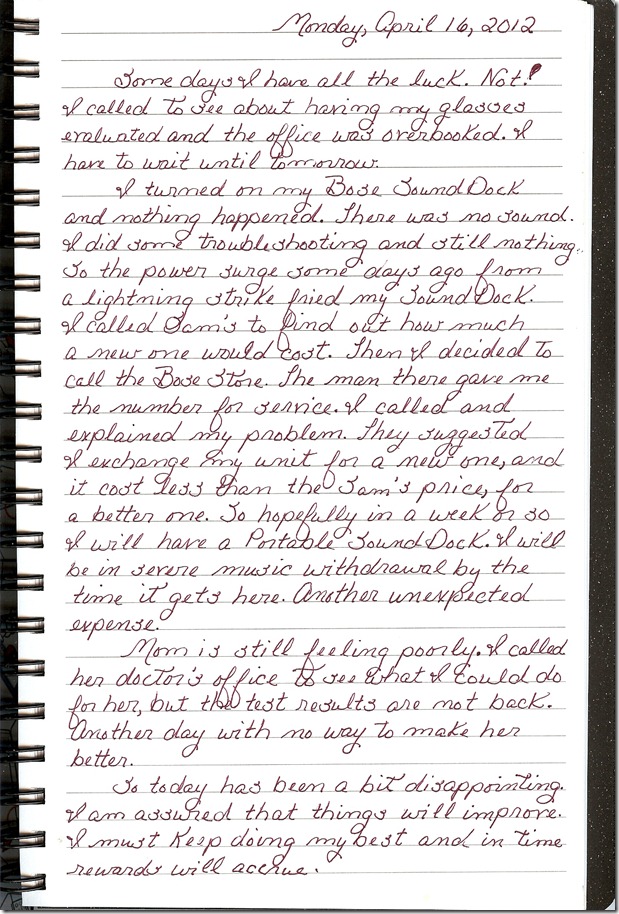 Monday, April 16, 2012
Some days I have all the luck. Not!
I called to see about having my glasses
evaluated and the office was overbooked. I
have to wait until tomorrow.
I turned on my Bose SoundDock
and nothing happened. There was no sound.
I did some troubleshooting and still nothing.
So the power surge some days ago from
a lightning strike fried my SoundDock.
I called Sam's to find out how much
a new one would cost. Then I decided to
call the Bose Store. The man there gave me
the number for service. I called and
explained my problem. They suggested
I exchange my unit for a new one, and
it cost less than the Sam's price, for
a better one. So hopefully in a week or so
I will have a Portable SoundDock. I will
be in severe music withdrawal by the
time it gets here. Another unexpected
expense.
Mom is still feeling poorly. I called
her doctor's office to see what I could do
for her, but the test results are not back.
Another day with no way to make her
better.
So today has been a bit disappointing.
I am assured that things will improve.
I must keep doing my best and in time
rewards will accrue.